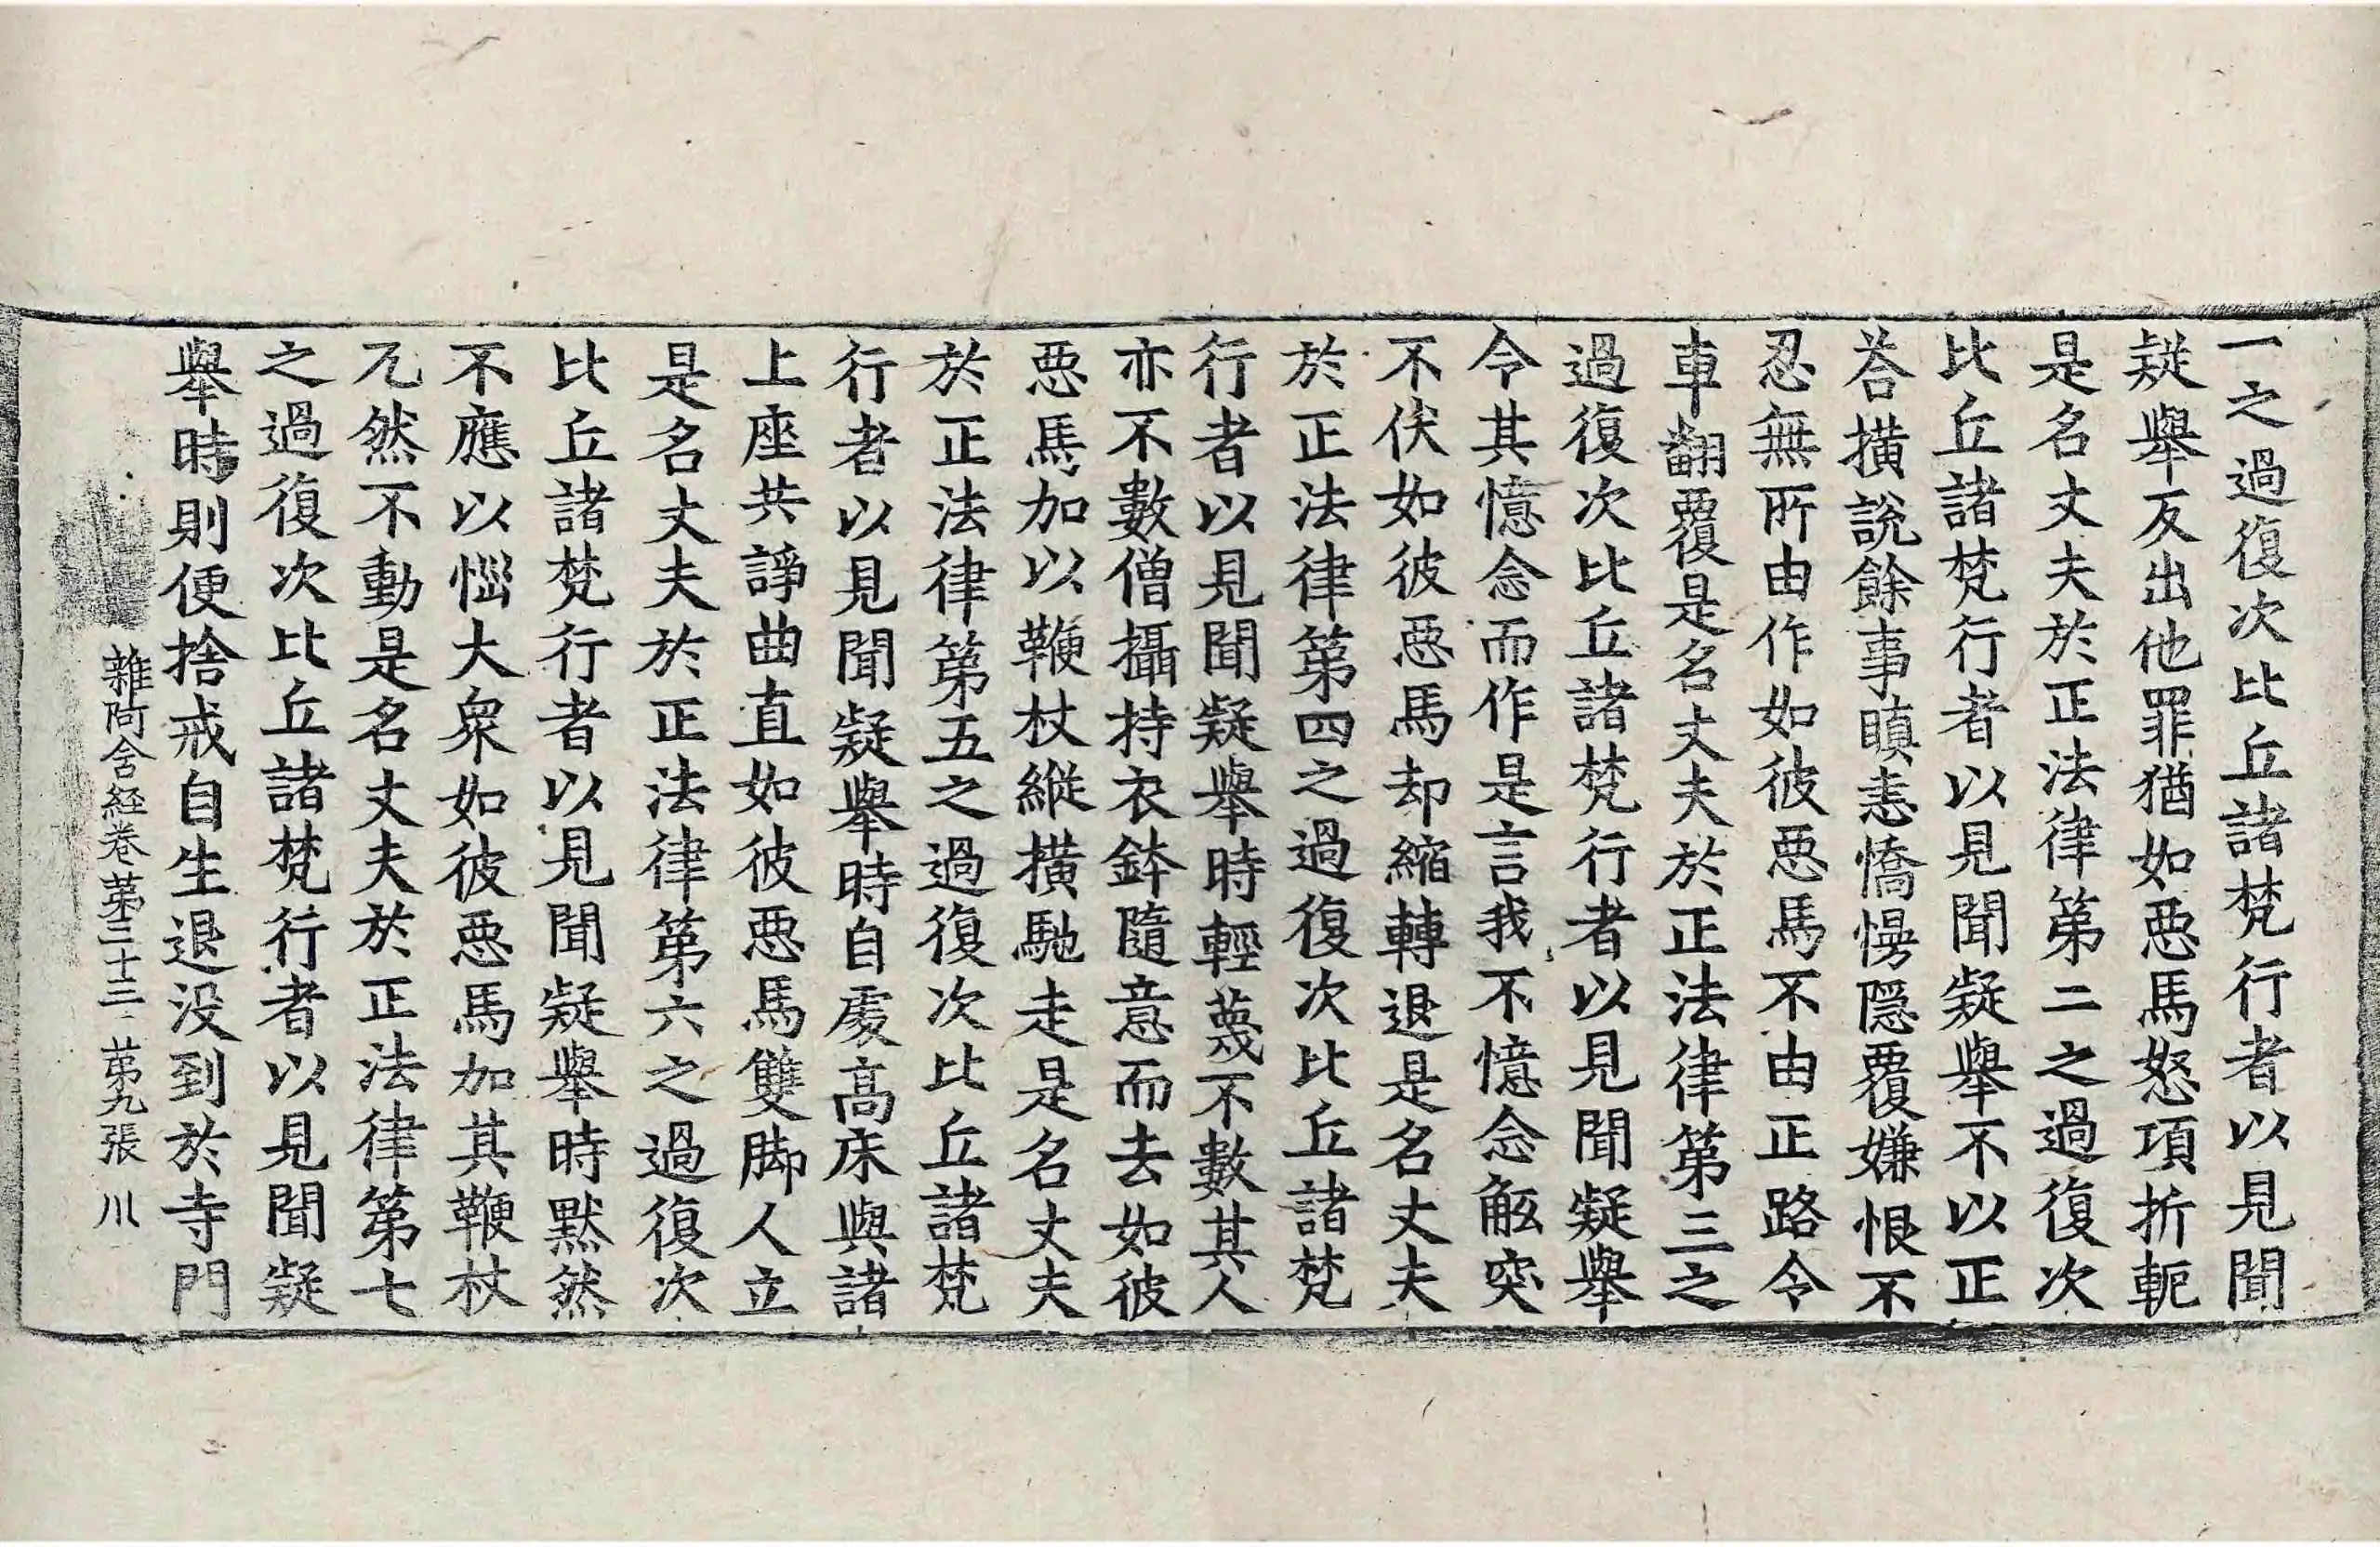 一之過復次比丘諸梵行者以見聞
疑舉反出他罪猶如惡馬怒項折軛
是名丈夫於正法律第二之過復次
比丘諸梵行者以見聞疑舉不以正
荅橫說餘事瞋恚憍慢隱覆嫌恨不
忍無所由作如彼惡馬不由正路令
車翻覆是名丈夫於正法律第三之
過復次比丘諸梵行者以見聞疑舉
令其憶念而作是言我不憶念觝突
不伏如彼惡馬却縮轉退是名丈夫
於正法律第四之過復次比丘諸梵
行者以見聞疑舉時輕蔑不數其人
亦不數僧攝持衣鉢隨意而去如彼
惡馬加以鞭杖縱橫馳走是名丈夫
於正法律第五之過復次比丘諸梵
行者以見聞疑舉時自處高床與諸
上座共諍曲直如彼惡馬雙脚人立
是名丈夫於正法律第六之過復次
比丘諸梵行者以見聞疑舉時默然
不應以惱大衆如彼惡馬加其鞭杖
兀然不動是名丈夫於正法律第七
之過復次比丘諸梵行者以見聞疑
舉時則便捨戒自生退没到於寺門
雜阿含経卷第三十三 第九張 川